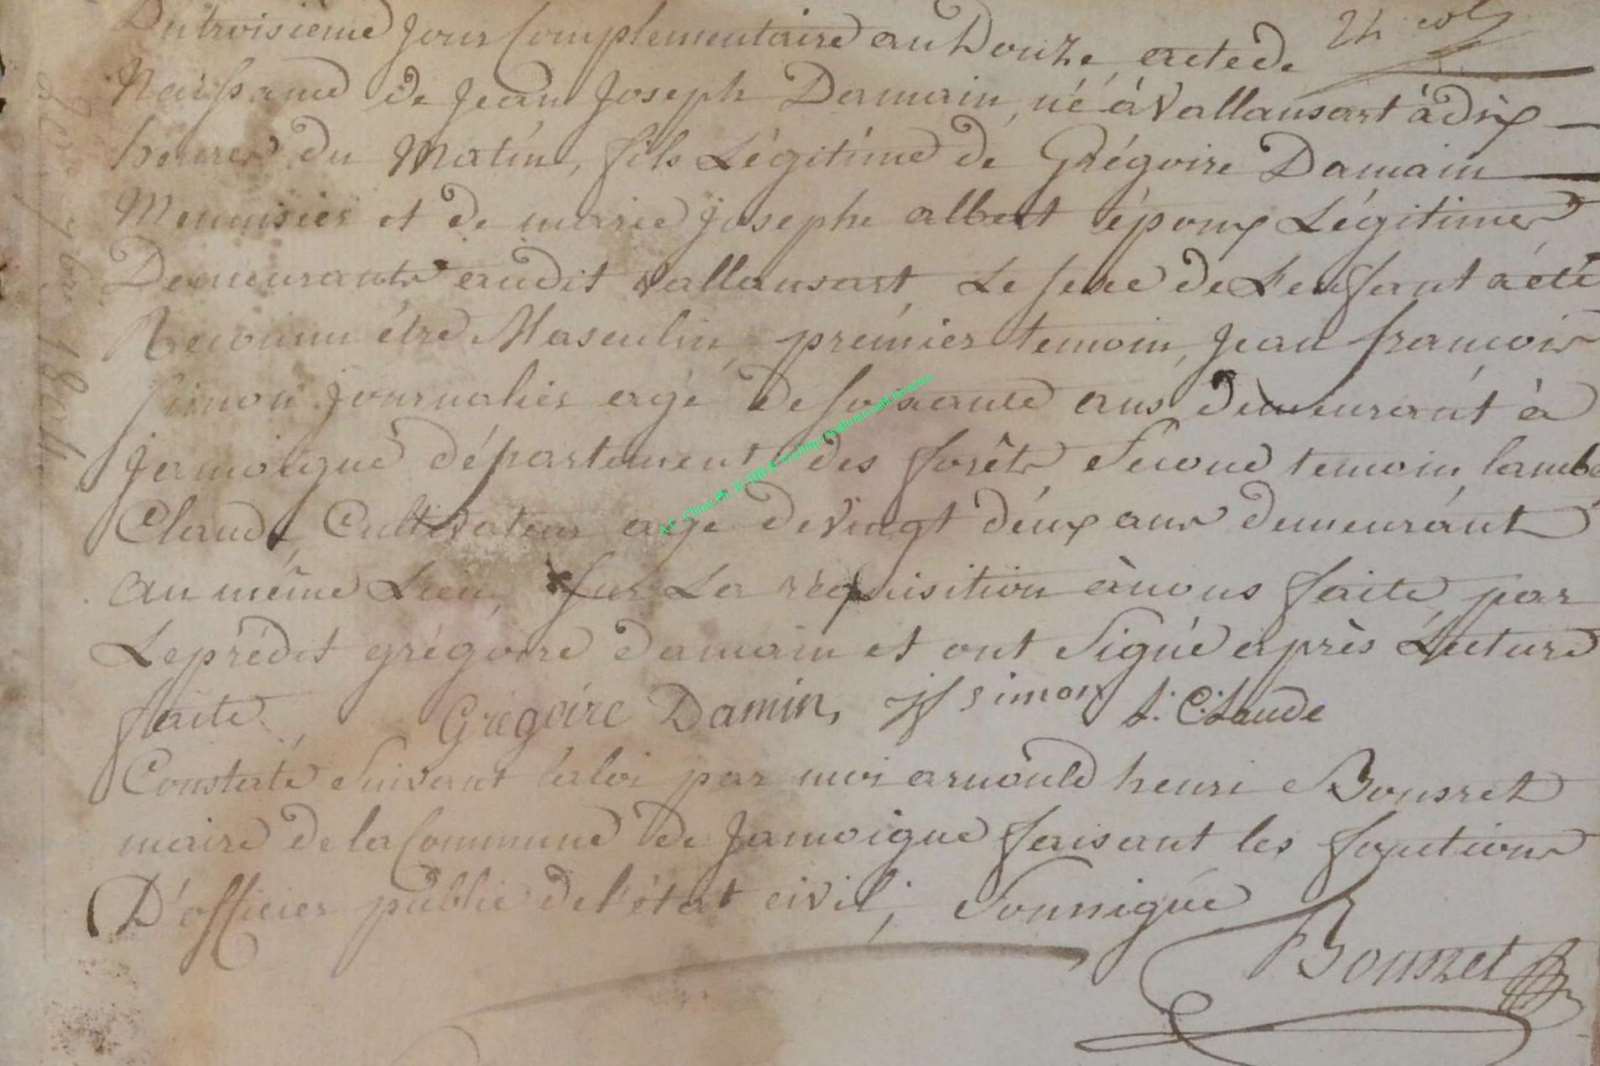 Du troisième jour Complementaire an Douze, acte de
Naissance de jean joseph Damain, né à Vallansart à dix
heures du Matin, fils Légitime de Grégoire Damain
Menuisier et de marie josephe albert époux Légitimes
Demeurants audit vallansart, Le sexe de L'enfant a été
Reconnu être Masculin, premier temoin, jean françois
simon journalier agé de soixante ans demeurant à
jamoigne département des forêts, Second temoin, lamb
Claude, Cultivateur agé de vingt deux ans demeurant
au même Lieu, sur La réquisition à nous faite par
Le prédit grégoire damain et ont Signé après Lecture
faite. Gregoire Damin, jf simon L: Claude
Constaté Suivant la loi par moi arnould henri Bonsret
maire de la Commune de jamoigne faisant les fonctions
D'officier public de l'état civil, Soussigné